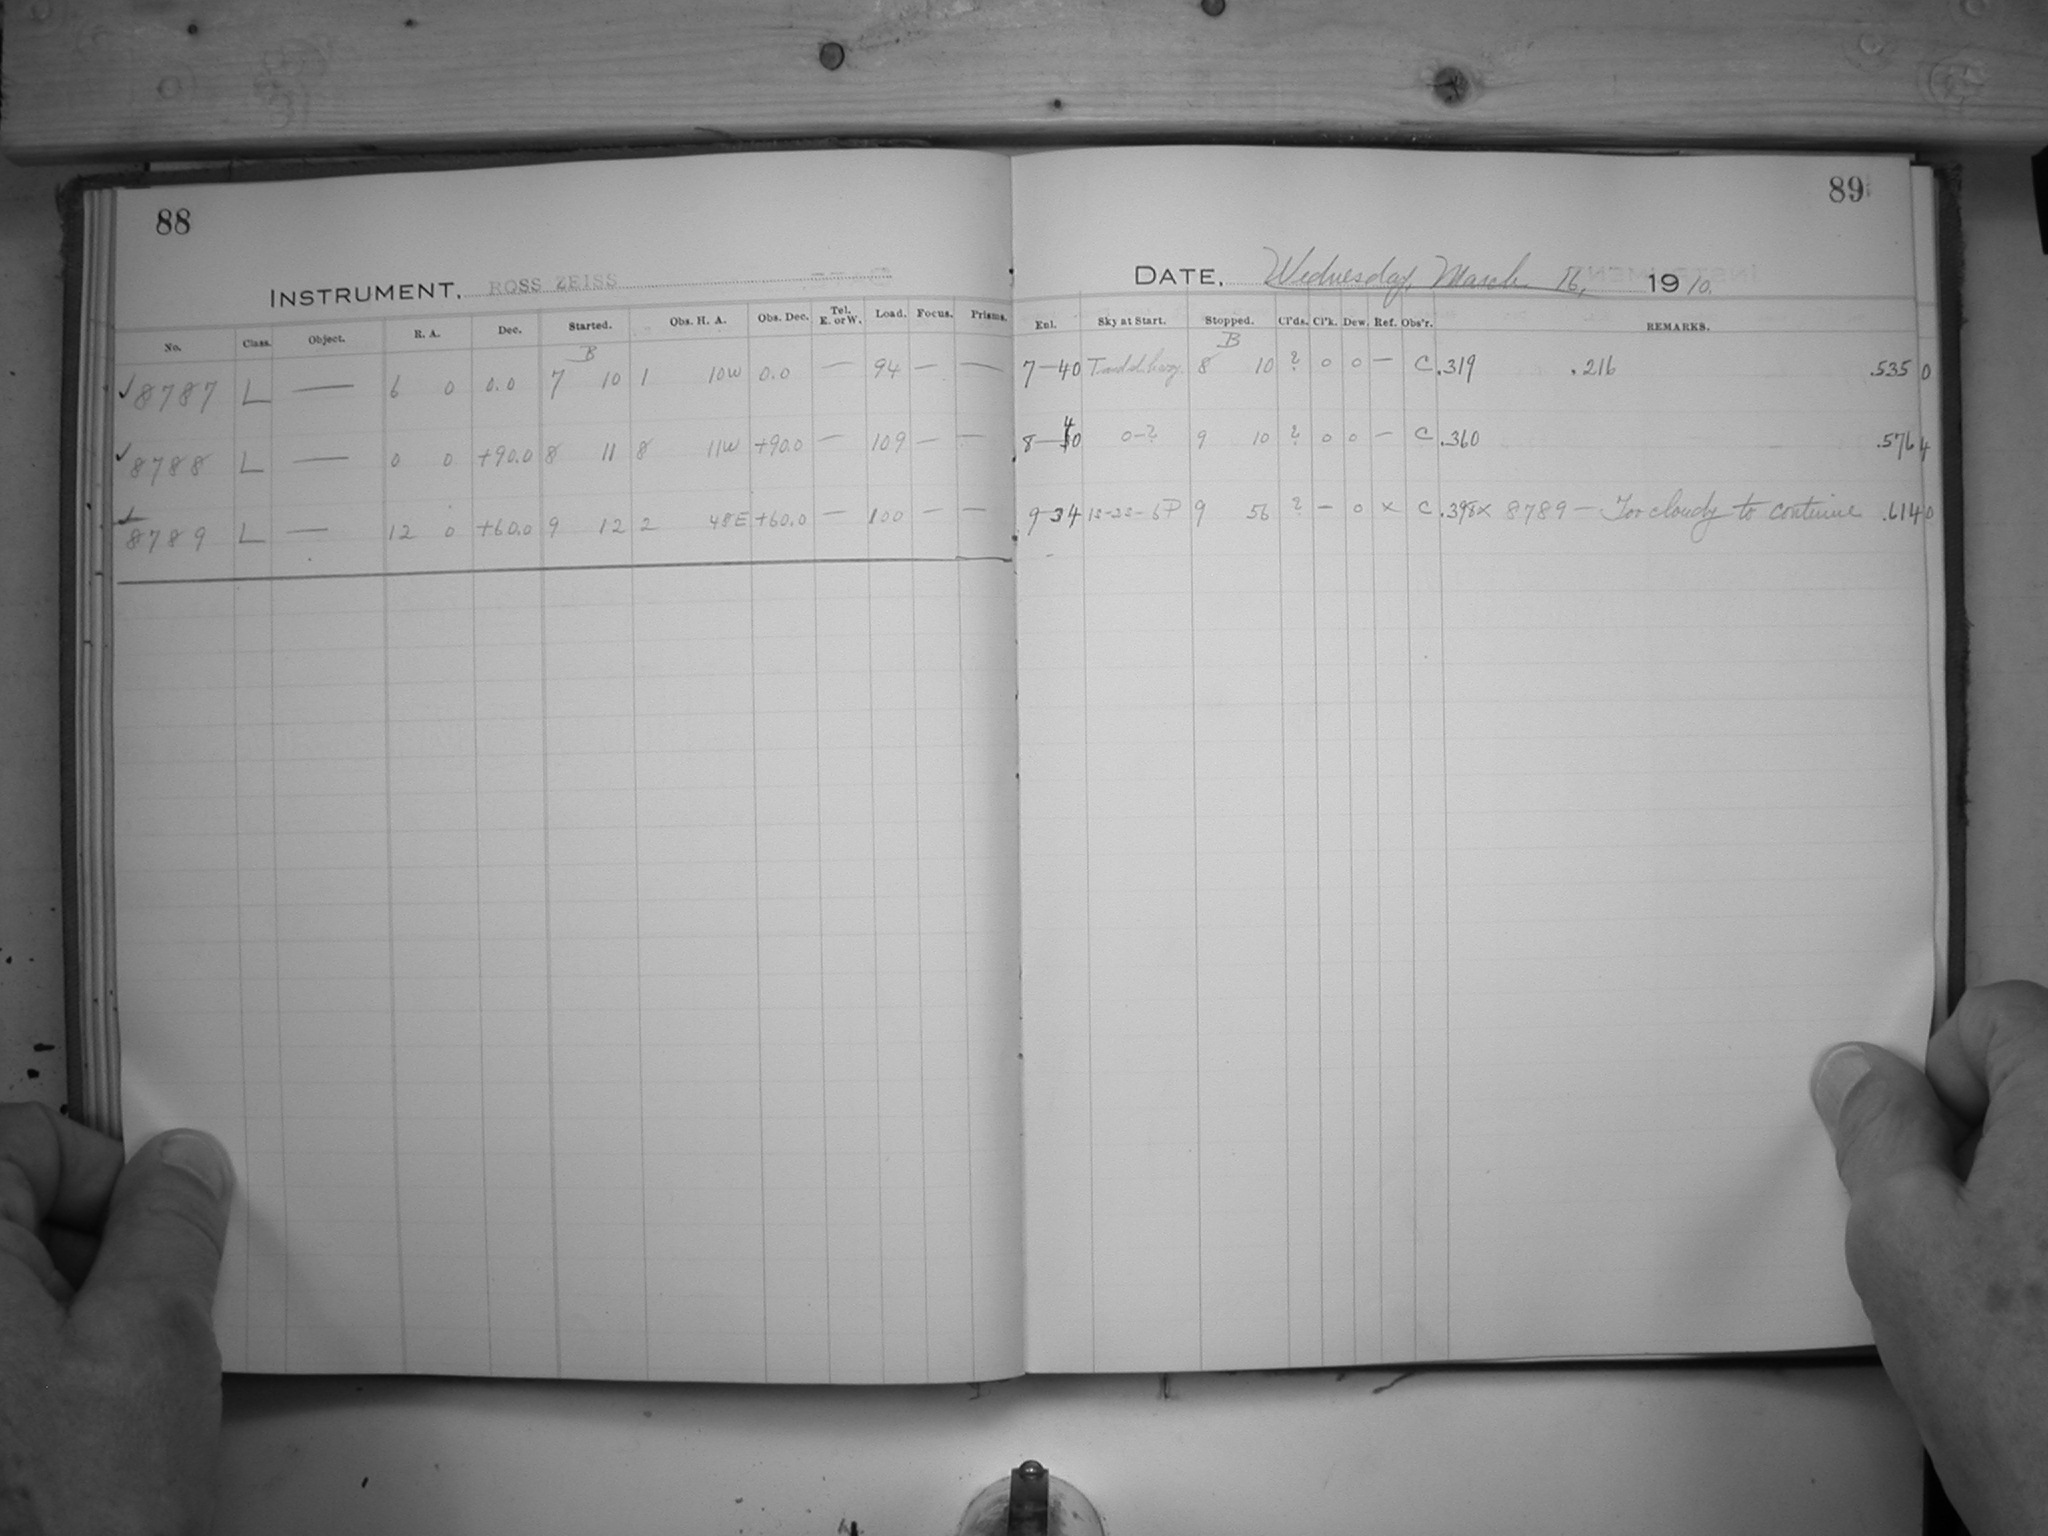 88
INSTRUMENT, ROSS ZEISS
No. Class. Object. R. A. Dec. Started. Obs. H. A. Obs. Dec. Tel. E. or W. Load. Focus. Prisms.
B
✓ 8787 L — 6 0 0.0 7 10 1 10W 0.0 — 94 — —
✓ 8788 L — 0 0 +90.0 8 11 8 11W +90.0 — 109 — —
✓ 8789 L — 12 0 +60.0 9 12 2 48E +60.0 — 100 — —
89
DATE, Wednesday, March 16, 1910.
Exl. Sky at Start. Stopped. Cl'ds. Cl'k. Dew. Ref. Obs'r. REMARKS.
B
7-40 8 10 ? 0 0 — C .319 .216 .535 0
8-40 0-? 9 10 ? 0 0 — C .360 .576 4
9-34 9 56 ? — 0 x C .398 x 8789 — Too cloudy to continue .614 0